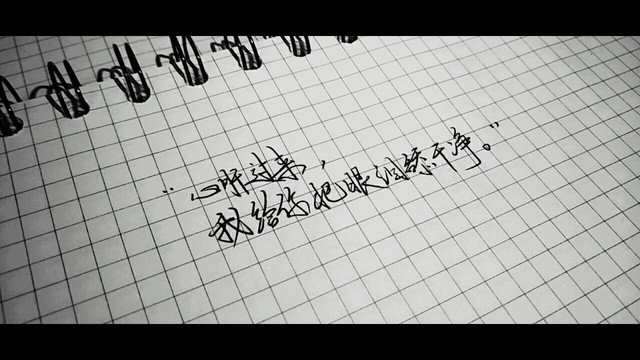 “心肝过来，
我给你把眼泪擦干净。”